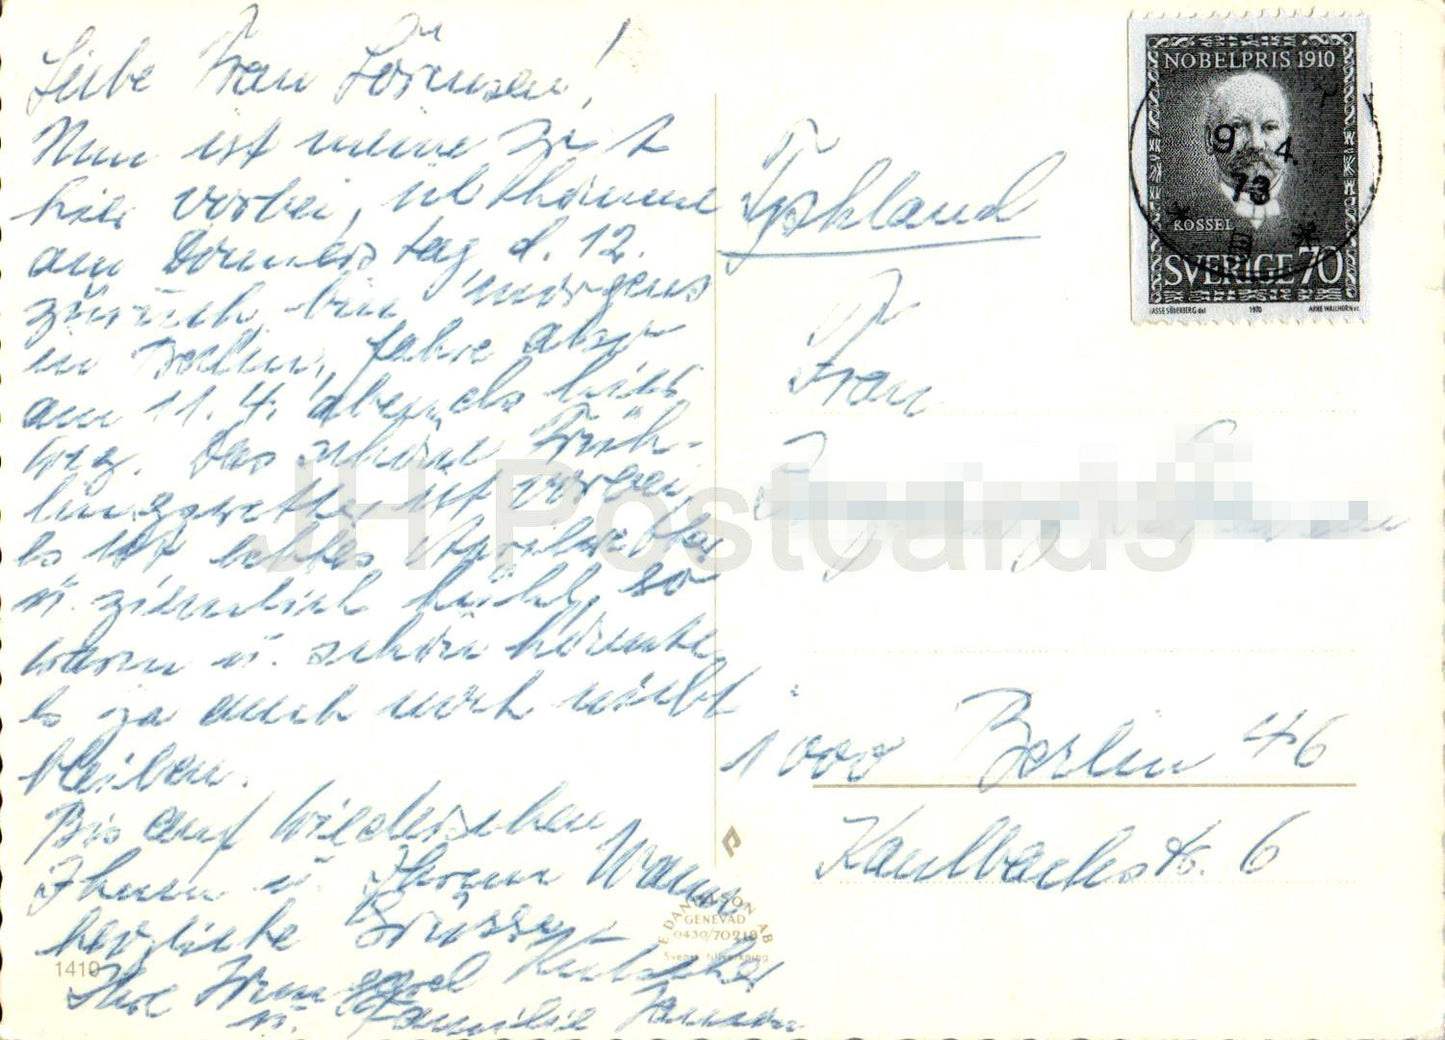 Liebe Frau Lörensen!
Nun ist meine Zeit
hier vorbei, ich komme
am Donnerstag d. 12.
zurück bin morgens
in Berlin, fahre aber
am 11. 4. abends hier
weg. Das schöne Früh-
lingswetter ist vorbei,
es ist echtes Aprilwetter
u. ziemlich kühl, so
warm u. schön konnte
es ja auch noch nicht
bleiben.
Bis auf Wiedersehen
Ihnen u. Ihrem Mann
herzliche Grüsse
Ihre Irmgard
u. Familie Janson
1410
Tyskland
Frau
1000 Berlin 46
Kaulbachstr. 6
NOBELPRIS 1910
KOSSEL
SVERIGE 70
LASSE SÖDERBERG del 1970 ARNE WALLHORN sc.
9 4
73
GENEVAD
0430/70218
Svensk tillverkning
JH Postcards